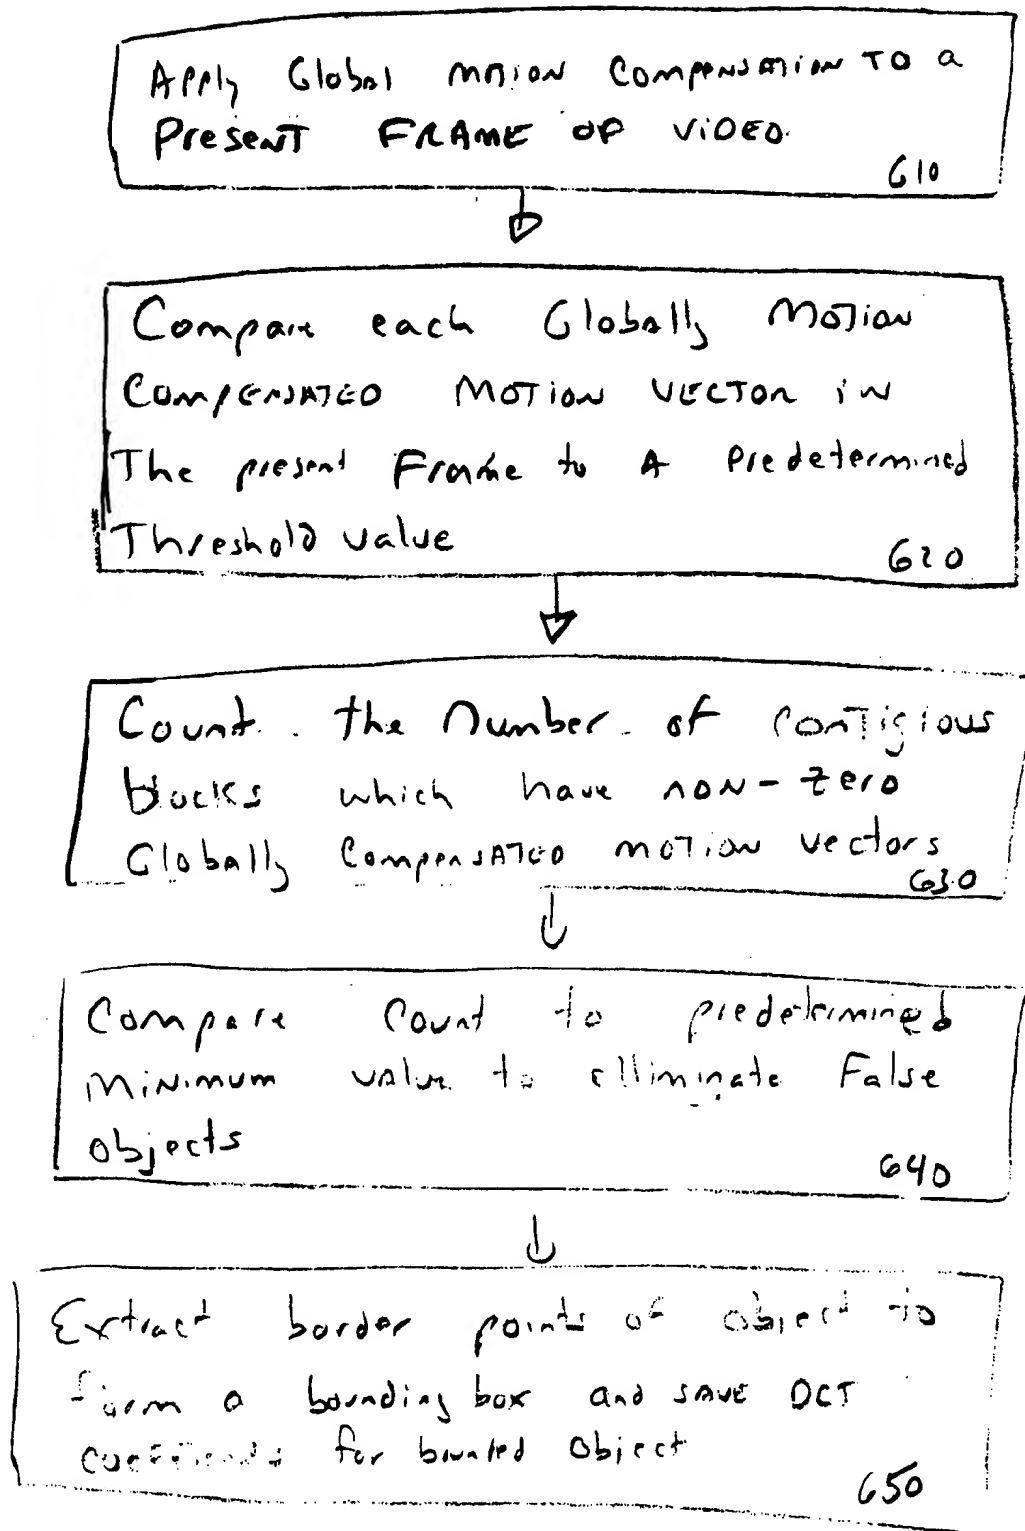 Apply Global motion compensation to a
Present FRAME OF VIDEO.
610
Compare each Globally Motion
COMPENSATED MOTION VECTOR in
The present Frame to A predetermined
Threshold value
620
Count the number of contigious
blocks which have non-zero
Globally compensated motion vectors
630
Compare count to predetermined
minimum value to elliminate False
objects
640
Extract border points of object to
form a bounding box and save DCT
coefficients for bounded object
650